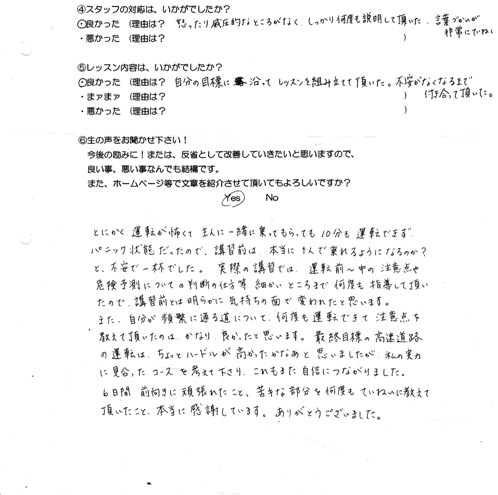 ④スタッフの対応は、いかがでしたか？
・良かった （理由は？ 怒ったり威圧的なところがなく、しっかり何度も説明して頂いた、言葉づかいが非常にていねい
・悪かった （理由は？ ）
⑤レッスン内容は、いかがでしたか？
・良かった （理由は？ 自分の目標に沿ってレッスンを組み立てて頂いた。不安がなくなるまで ）付き合って頂いた。
・まァまァ （理由は？ ）
・悪かった （理由は？ ）
⑥生の声をお聞かせ下さい！
今後の励みに！または、反省として改善していきたいと思いますので、
良い事、悪い事なんでも結構です。
また、ホームページ等で文章を紹介させて頂いてもよろしいですか？
Yes No
とにかく、運転が怖くて主人に一緒に乗ってもらっても10分も運転できず、
パニック状態だったので、講習前は、本当に1人で乗れるようになるのか？
と、不安で一杯でした。 実際の講習では、運転前〜中の注意点や
危険予測についての判断の仕方等 細かいところまで何度も指導して頂い
たので、講習前とは明らかに気持ちの面で変われたと思います。
また、自分が頻繁に通る道について、何度も運転できて注意点を
教えて頂いたのは、かなり良かったと思います。 最終目標の高速道路
の運転は、ちょっとハードルが高かったかなあと思いましたが、私の実力
に見合ったコースを考えて下さり、これもまた自信につながりました。
6日間 前向きに頑張れたこと、苦手な部分を何度もていねいに教えて
頂いたこと、本当に感謝しています。ありがとうございました。